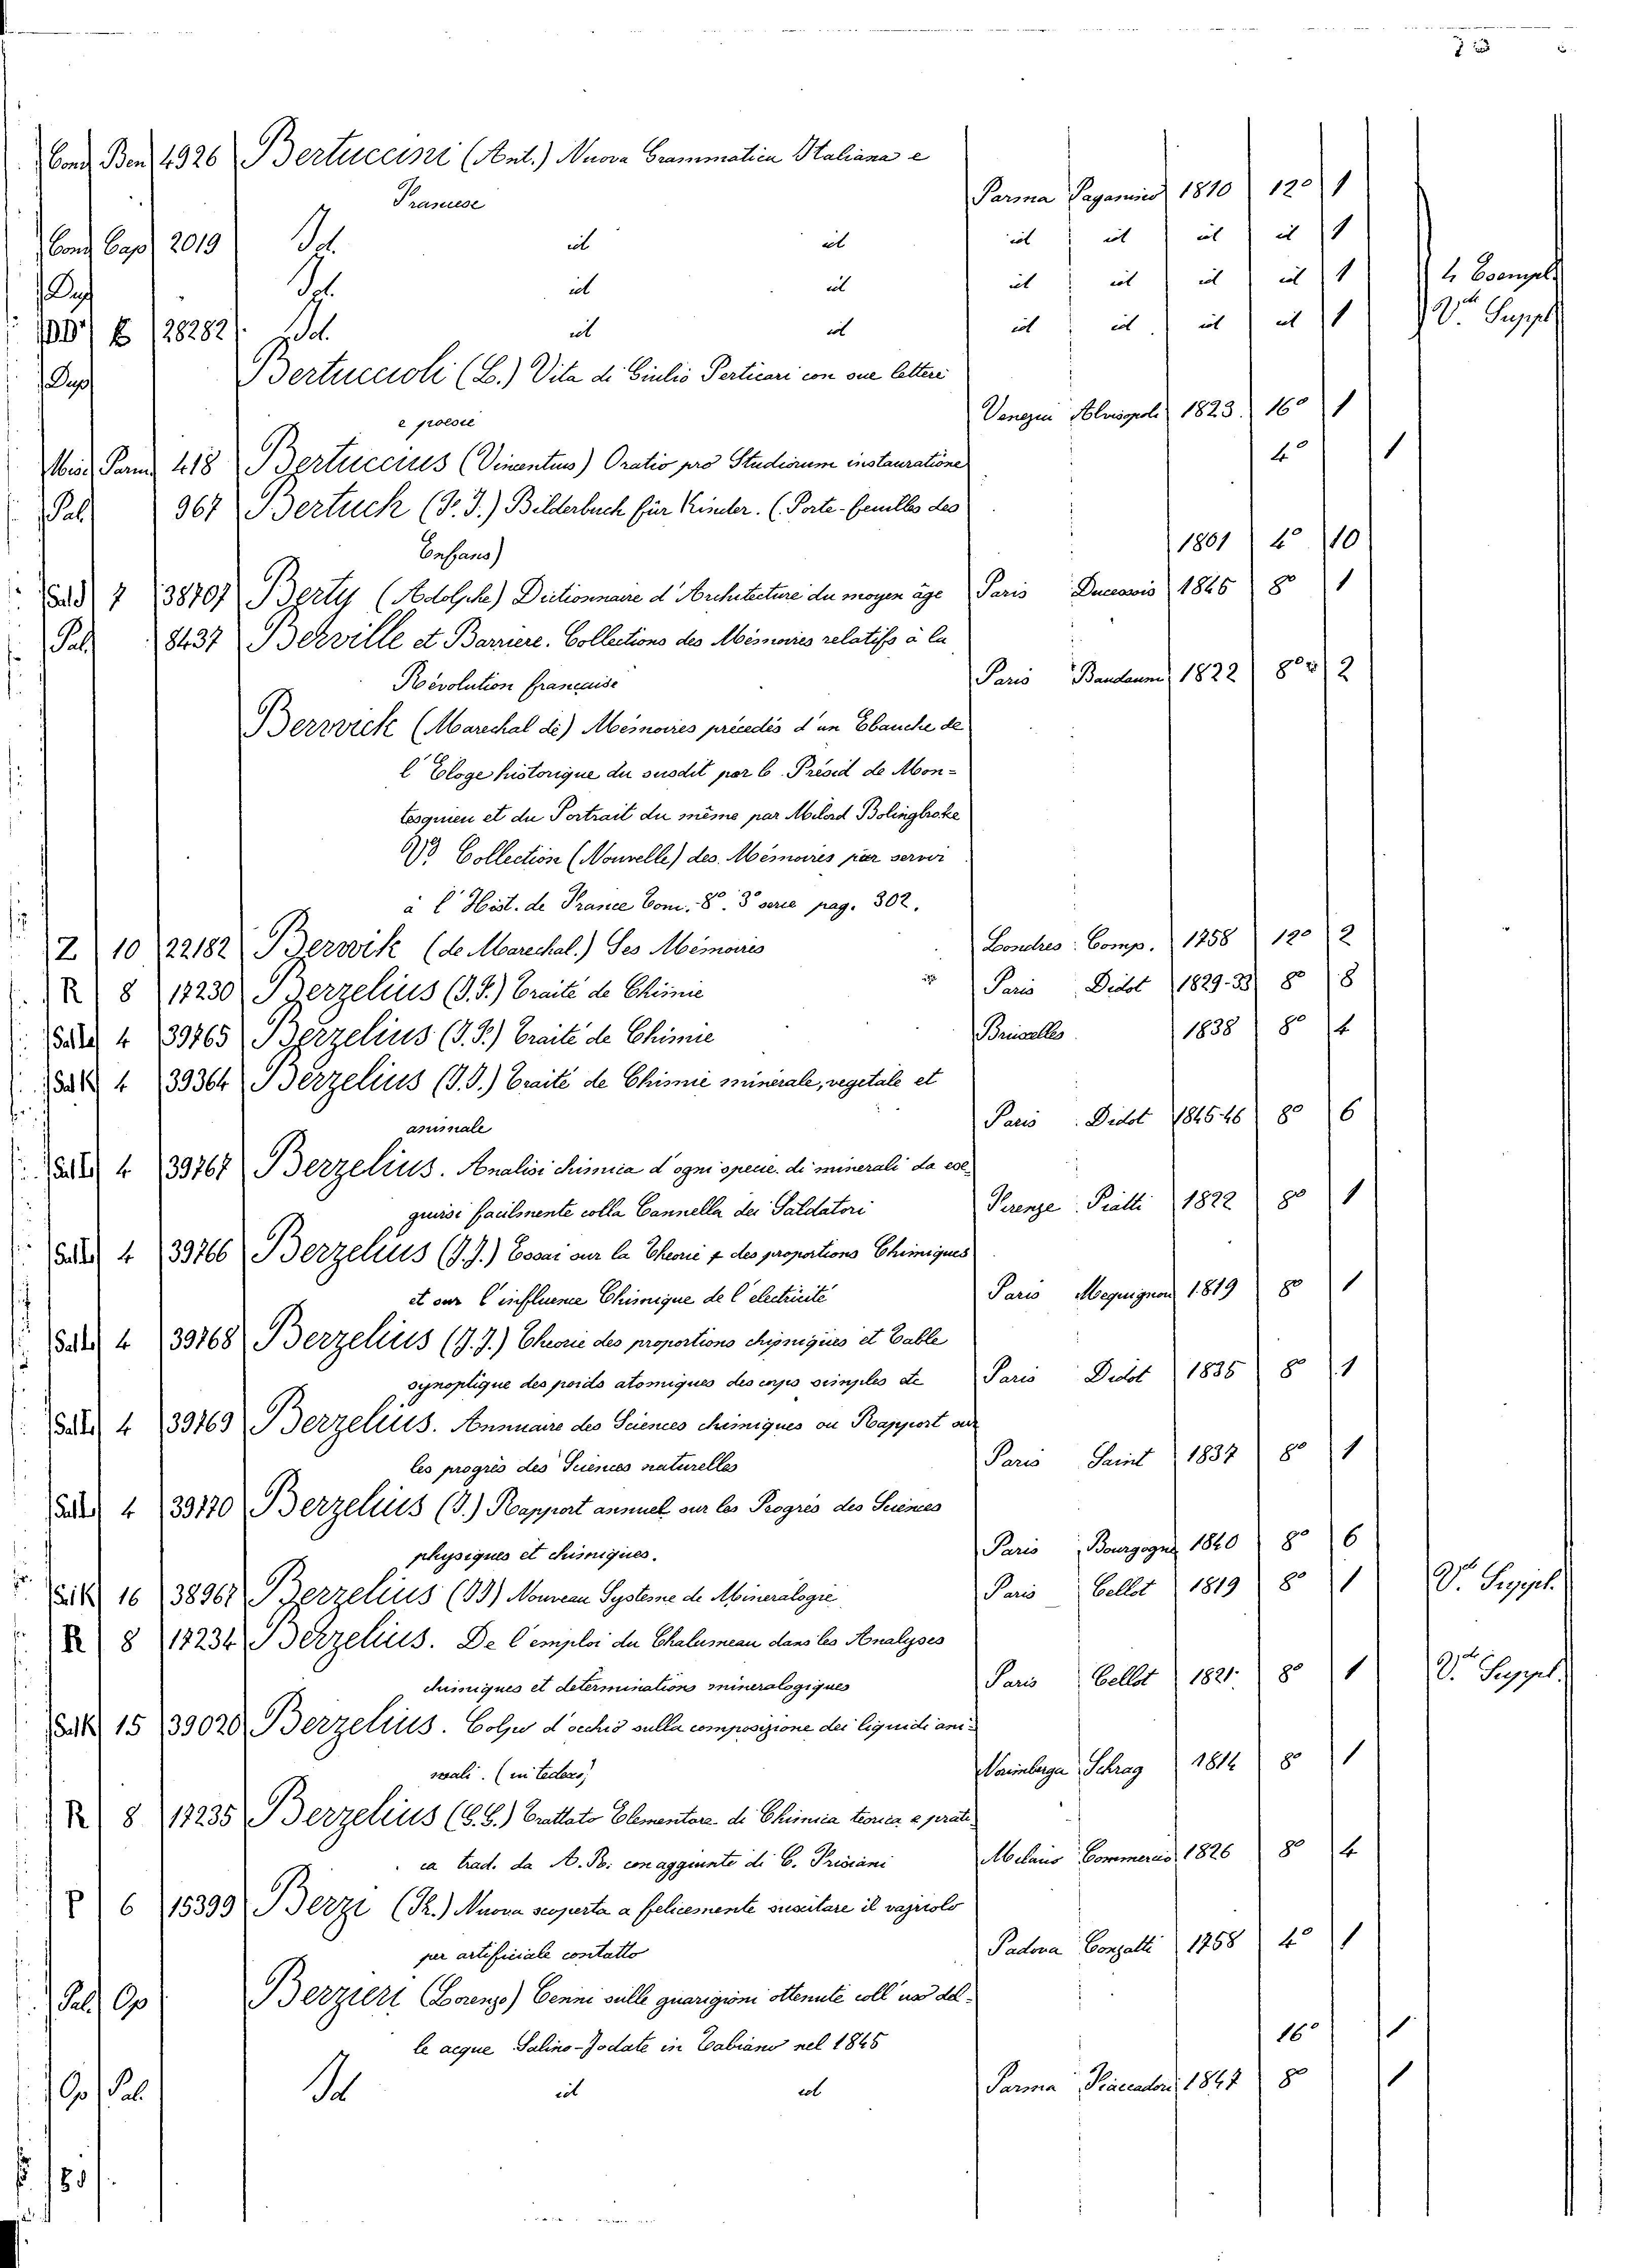 Cond Ben 4926 Bertuccini (Ant.) Nuova Grammatica Italiana e
Francese Parma Paganino 1810 12º 1
Cond Cap 2019 Id. id id id id id id 1
Dup Id. id id id id id id 1 4 Esempl.
DD E 28282 Id. id id id id id id 1 Vdi Suppl
Dup Bertuccioli (L.) Vita di Giulio Perticari con sue lettere
e poesie Venezia Alvisopoli 1823 16º 1
Misc Parm 418 Bertuccius (Vincentius) Oratio pro Studiorum instauratione 4º 1
Pal 967 Bertuch (F. J.) Bilderbuch für Kinder. (Porte-feuilles des
Enfans) 1801 4º 10
7 38707 Berty (Adolphe) Dictionnaire d'Architecture du moyen âge Paris 1845 8º 1
Pal 8437 Berville et Barriere. Collections des Mémoires relatifs à la
Révolution française Paris Baudaum 1822 8º 2
Berwick (Marechal de) Mémoires précedés d'un Ebauche de
l'Eloge historique du susdit par C. Présid de Mon-
tesquieu et du Portrait du même par Milord Bolingbroke
Vd Collection (Nouvelle) des Mémoires par servir
à l'Hist. de France Tom. 8º. 3º serie pag. 302.
Z 10 22182 Berwik (de Marechal.) Ses Mémoires Londres Comp. 1758 12º 2
R 8 17230 Berzelius (J. F.) Traité de Chimie Paris Didot 1829-33 8º 8
4 39765 Berzelius (J. F.) Traité de Chimie Bruxelles 1838 8º 4
Sal K 4 39364 Berzelius (J. J.) Traité de Chimie minérale, vegetale et
animale Paris Didot 1845-46 8º 6
4 39767 Berzelius. Analisi chimica d'ogni specie di minerali da ese-
guirsi facilmente colla Cannella dei Saldatori Firenze Piatti 1822 8º 1
4 39766 Berzelius (J. J.) Essai sur la Theorie des proportions Chimiques
et sur l'influence Chimique de l'electricité Paris Mequignon 1819 8º 1
4 39768 Berzelius (J. J.) Theorie des proportions chimiques et Table
synoptique des poids atomiques des corps simples etc Paris Didot 1835 8º 1
4 39769 Berzelius. Annuaire des Sciences chimiques ou Rapport sur
les progrès des Sciences naturelles Paris Saint 1837 8º 1
4 39770 Berzelius (J.) Rapport annuel sur les Progrès des Sciences
physiques et chimiques. Paris Bourgogne 1840 8º 6
Sal K 16 38967 Berzelius (JJ) Nouveau Systeme de Mineralogie Paris Cellot 1819 8º 1 Vdi Suppl.
R 8 17234 Berzelius. De l'emploi du Chalumeau dans les Analyses
chimiques et determinations mineralogiques Paris Cellot 1821 8º 1 Vdi Suppl.
Sal K 15 39020 Berzelius. Colpo d'occhio sulla composizione dei liquidi ani-
mali. (in tedesco) Norimberga Schrag 1814 8º 1
R 8 17235 Berzelius (G. G.) Trattato Elementare di Chimica teorica e prati-
ca trad. da A. R. con aggiunte di C. Frisiani Milano Commercio 1826 8º 4
P 6 15399 Berzi (F.) Nuova scoperta a felicemente suscitare il vajuolo
per artificiale contatto Padova Conzatti 1758 4º 1
Pal Op Berzieri (Lorenzo) Cenni sulle guarigioni ottenute coll'uso del-
le acque Salino-Jodate in Tabiano nel 1845 16º 1
Op Pal Id id id Parma Fiaccadori 1847 8º 1